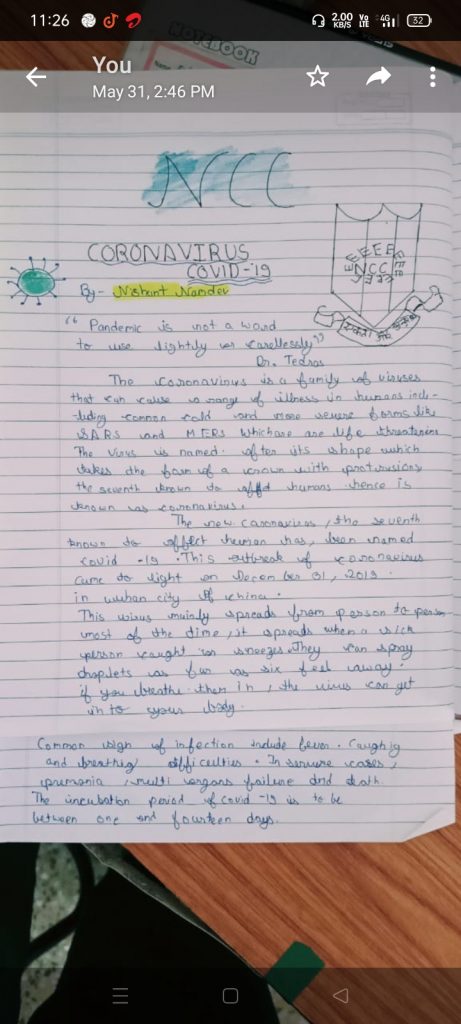 11:26
2.00 KB/S
Vo LTE
4G
32
NOTEBOOK
You
May 31, 2:46 PM
NCC
CORONAVIRUS
COVID-19
By- Nishant Namdev
NCC
"Pandemic is not a word
to use lightly or carelessly"
Dr. Tedros
The Coronavirus is a family of viruses
that can cause a range of illness in humans inclu-
-ding common cold and more severe forms like
SARS and MERs which are life threatening
The virus is named after its shape which
takes the form of a crown with protrusions
the seventh known to affd humans hence is
known as coronavirus.
The new Coronavirus, the seventh
known to affect human has, been named
covid -19. This outbreak of coronavirus
came to light on December 31, 2019.
in wuhan city of china.
This virus mainly spreads from person to person
most of the time, it spreads when a sick
person caught or sneezes. They can spray
droplets as far as six feet away.
if you breathe them in, the virus can get
in to your body.
Common sign of infection include fever. Caughig
and breathig difficulties. In servure cases,
pnemonia, multi organs failure and death.
The incubation period of covid -19 is to be
between one and fourteen days.